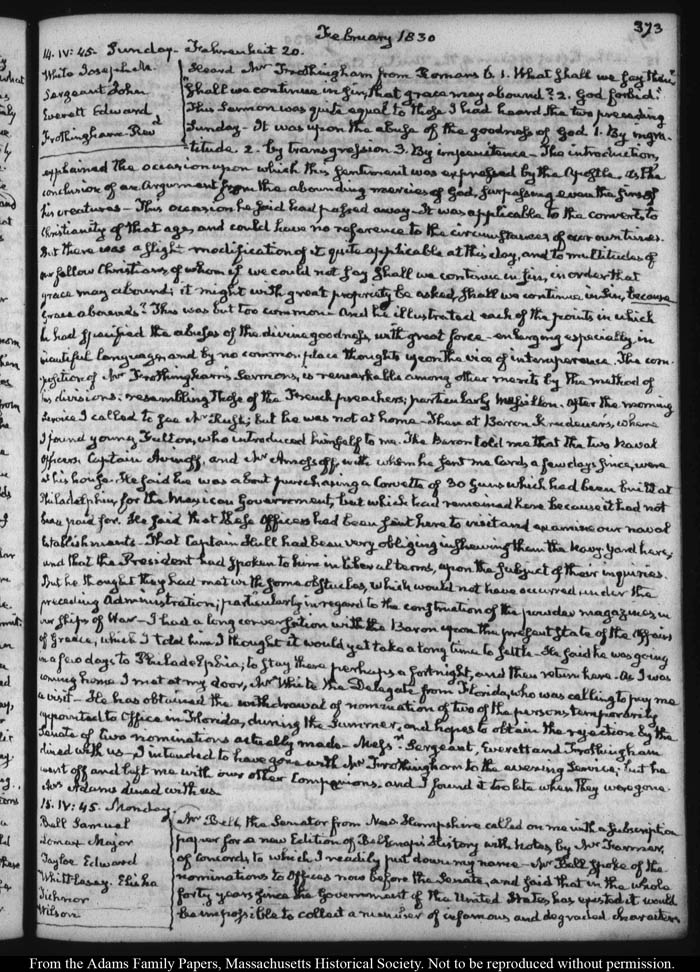 February 1830
373
14. IV: 45. Sunday. Fahrenheit 20.
White Joseph M.
Sergeant John
Everett Edward
Frothingham Rev.d
Heard Mr Frothingham from Romans 6. 1. What shall we say then?
Shall we continue in sin, that grace may abound? 2. God forbid."
This Sermon was quite equal to those I had heard the two preceding
Sunday — It was upon the abuse of the goodness of God 1. By ingra-
titude 2. by transgression 3. By impenitence — The introduction,
explained the occasion upon which this sentiment was expressed by the Apostle. as the
conclusion of an Argument from the abounding mercies of God, surpassing even the sins of
his creatures — This occasion he said had passed away — It was applicable to the converts to
Christianity of that age, and could have no reference to the circumstances of our own times.
But there was a slight modification of it quite applicable at this day, and to multitudes of
our fellow Christians, of whom if we could not say shall we continue in sin, in order that
grace may abound; it might with great propriety be asked, shall we continue in sin, because
Grace abounds? This was but too common — And he illustrated each of the points in which
he had specified the abuses of the divine goodness, with great force — enlarging especially in
beautiful language, and by no common place thoughts upon the vice of intemperance. The com-
position of Mr Frothingham's Sermons, is remarkable among other merits by the method of
his divisions: resembling those of the French preachers; particularly Massillon. After the morning
service I called to see Mr Rush; but he was not at home — Then at Baron Krudener's, where
I found young Fulton, who introduced himself to me. The Baron told me that the two Naval
Officers Captain Avinoff, and Mr Amossoff, with whom he sent me Cards a few days since, were
at his house. He said he was about purchasing a Corvette of 30 Guns which had been built at
Philadelphia, for the Mexican Government, but which had remained here because it had not
been paid for. He said that these Officers had been sent here to visit and examine our naval
Establishments — That Captain Hull had been very obliging in shewing them the Navy-Yard here,
and that the President had spoken to him in liberal terms, upon the subject of their inquiries.
But he thought they had met with some obstacles, which would not have occurred under the
preceding Administration; particularly in regard to the construction of the powder magazines, in
our Ships of War — I had a long conversation with the Baron upon the present State of the Affairs
of Greece, which I told him I thought it would yet take a long time to settle — He said he was going
in a few days to Philadelphia; to stay there perhaps a fortnight, and then return here. As I was
coming home I met at my door, Mr White the Delegate from Florida, who was calling to pay me
a visit — He has obtained the withdrawal of nomination of two of the persons temporarily
appointed to Office in Florida, during the Summer, and hopes to obtain the rejection by the
Senate of two nominations actually made — Messrs Sergeant, Everett and Frothingham
dined with us — I intended to have gone with Mr Frothingham to the evening Service; but he
went off and left me with our other Companions, and I found it too late when they were gone.
Mrs Adams dined with us.
15. IV: 45. Monday.
Bell Samuel
Lomax Major
Tayloe Edward
Whittlesey Elisha
Tichnor
Wilson
Mr Bell, the Senator from New-Hampshire called on me with a Subscription
paper for a new Edition of Belknap's History with Notes by Mr Farmer,
of Concord, to which I readily put down my name — Mr Bell spoke of the
nominations to Offices now before the Senate, and said that in the whole
forty years since the Government of the United States has existed it would
be impossible to collect a number of infamous and degraded characters
From the Adams Family Papers, Massachusetts Historical Society. Not to be reproduced without permission.